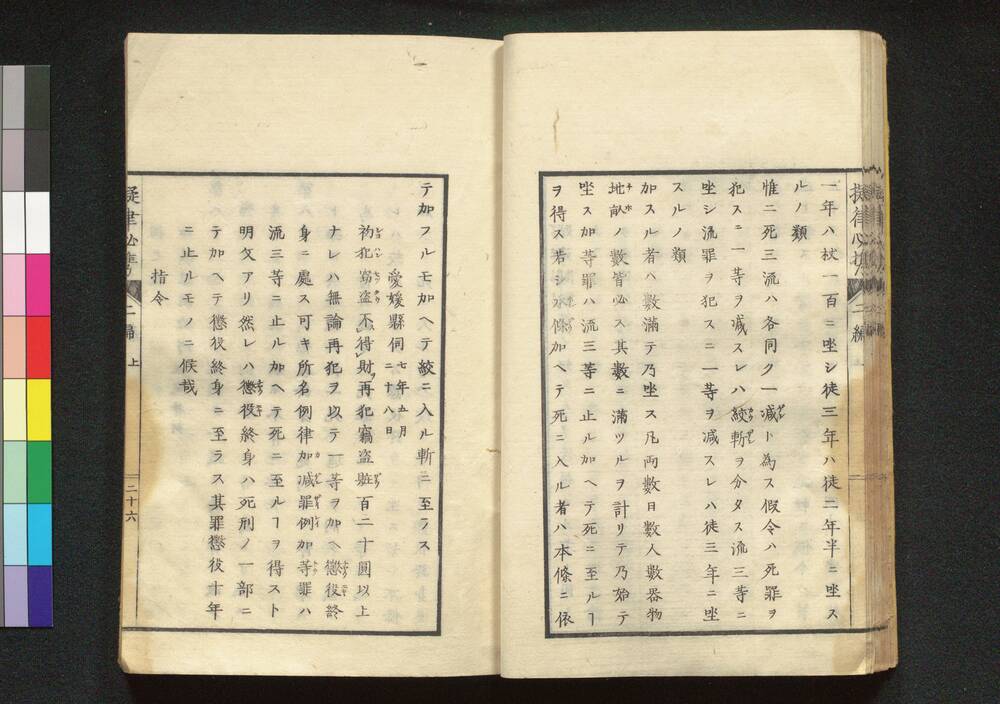 一年ハ杖一百ニ坐シ徒三年ハ徒二年半ニ坐ス
ルノ類
惟二死三流ハ各同ク一減ト為ス假令ハ死罪ヲ
犯スニ一等ヲ减スレハ絞斬ヲ分タス流三等ニ
坐シ流罪ヲ犯スニ一等ヲ减スレハ徒三年ニ坐
スルノ類
加スル者ハ數滿テ乃坐ス凡両數日數人數器物
地畝ノ數皆必ス其數ニ滿ツルヲ計リテ乃始テ
坐ス加等罪ハ流三等ニ止ル加ヘテ死ニ至ルヿ
ヲ得ス若シ本條加ヘテ死ニ入ル者ハ本條ニ依
テ加フルモ加ヘテ絞ニ入ル斬ニ至ラス
愛媛縣伺 七年五月二十八日
初犯窃盗不得財再犯竊盗贓百二十圓以上
ナレハ無論再犯ヲ以テ一等ヲ加ヘ懲役終
身ニ處ス可キ所名例律加减罪例加等罪ハ
流三等ニ止ル加ヘテ死ニ至ルヿヲ得スト
明文アリ然レハ懲役終身ハ死刑ノ一部ニ
テ加ヘテ懲役終身ニ至ラス其罪懲役十年
ニ止ルモノニ候哉
指令
二編 上
二十六